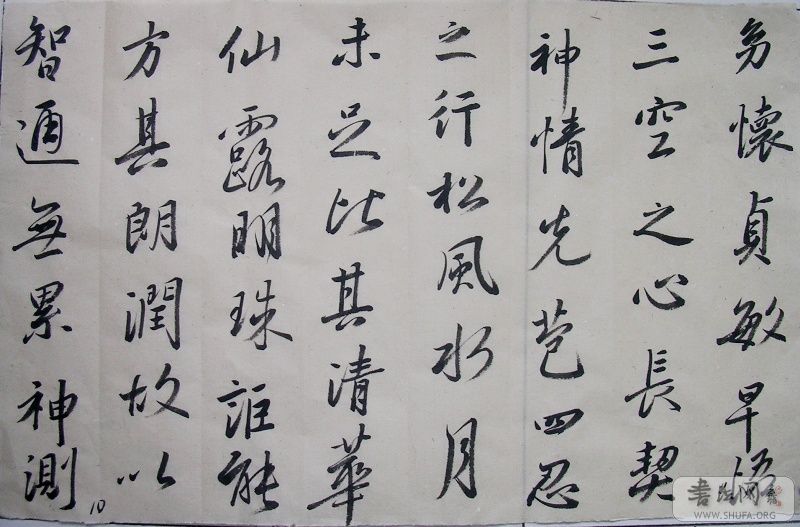 㓜懷貞敏早悟
三空之心長契
神情先苞四忍
之行松風水月
未足比其清華
仙露明珠詎能
方其朗潤故以
智通無累神測
10
书法网
WWW.SHUFA.ORG